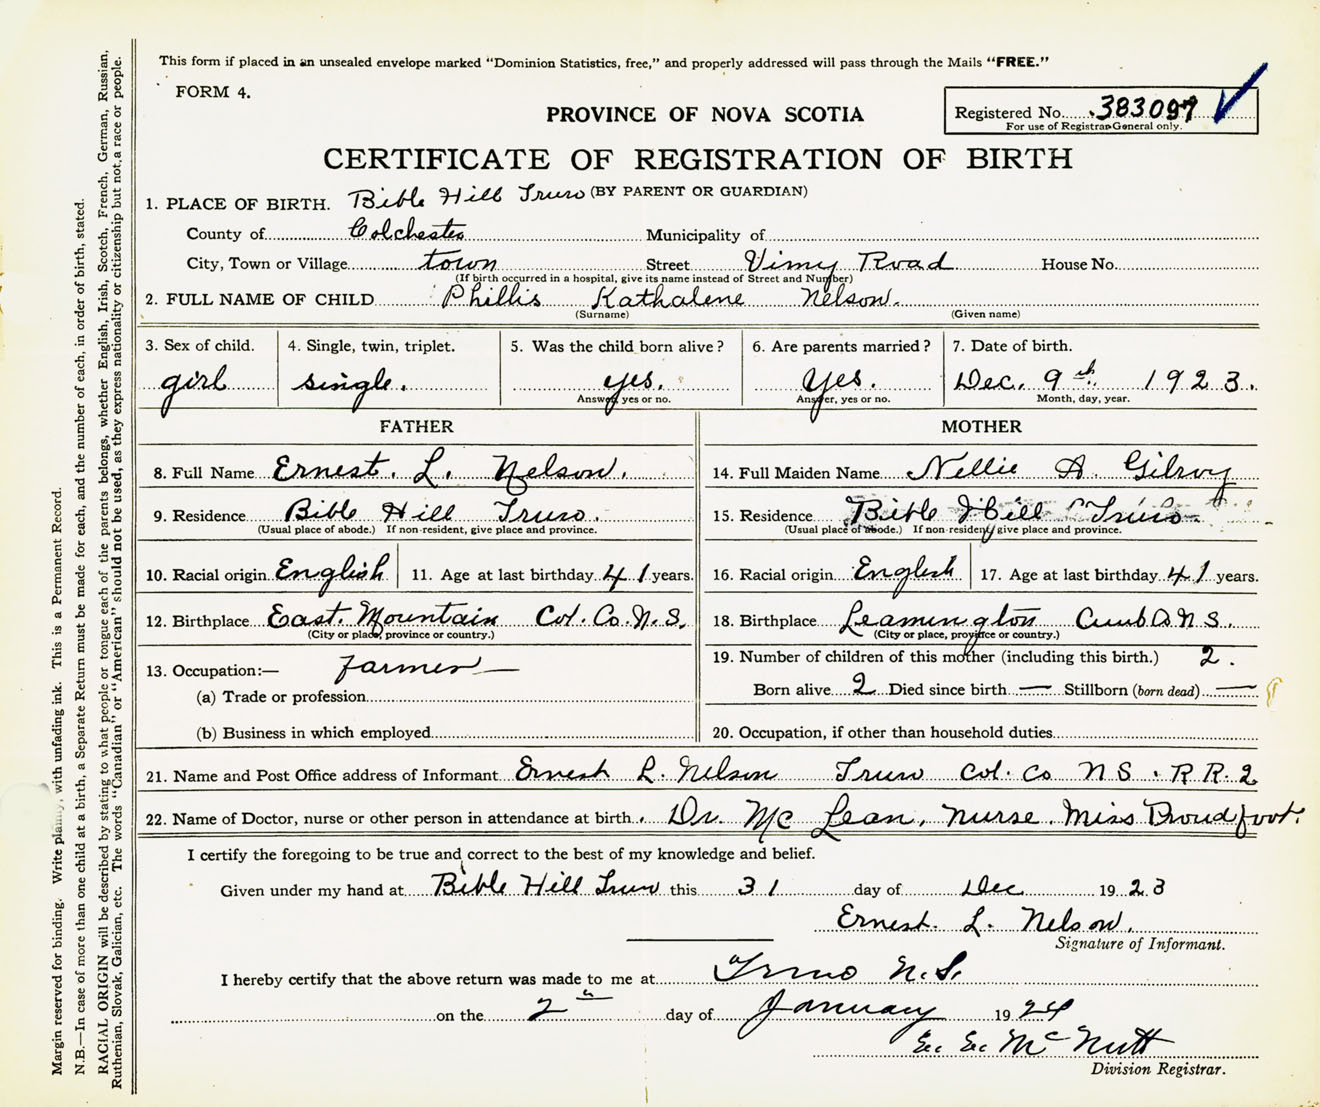 This form if placed in an unsealed envelope marked "Dominion Statistics, free," and properly addressed will pass through the Mails "FREE."
FORM 4.
PROVINCE OF NOVA SCOTIA
Registered No. 383097
For use of Registrar General only.
CERTIFICATE OF REGISTRATION OF BIRTH
(BY PARENT OR GUARDIAN)
1. PLACE OF BIRTH. Bible Hill Truro
County of Colchester Municipality of
City, Town or Village town Street Vimy Road House No.
(If birth occurred in a hospital, give its name instead of Street and Number)
2. FULL NAME OF CHILD Phillis Kathalene Nelson.
(Surname) (Given name)
3. Sex of child. 4. Single, twin, triplet. 5. Was the child born alive? 6. Are parents married? 7. Date of birth.
girl single. yes. Yes. Dec. 9th. 1923.
Answer, yes or no. Answer, yes or no. Month, day, year.
FATHER MOTHER
8. Full Name Ernest. L. Nelson. 14. Full Maiden Name Nellie A. Gilroy
9. Residence Bible Hill Truro. 15. Residence Bible Hill Truro.
(Usual place of abode.) If non-resident, give place and province. (Usual place of abode.) If non-resident, give place and province.
10. Racial origin English 11. Age at last birthday 41 years. 16. Racial origin English 17. Age at last birthday 41 years.
12. Birthplace East. Mountain Col. Co. N.S. 18. Birthplace Leamington Cumb Co N S.
(City or place, province or country.) (City or place, province or country.)
13. Occupation:— farmer 19. Number of children of this mother (including this birth.) 2.
(a) Trade or profession Born alive 2 Died since birth — Stillborn (born dead) —
(b) Business in which employed 20. Occupation, if other than household duties
21. Name and Post Office address of Informant Ernest L. Nelson Truro Col. Co N S. R R. 2
22. Name of Doctor, nurse or other person in attendance at birth. Dr. Mc Lean, nurse. Miss Proudfoot.
I certify the foregoing to be true and correct to the best of my knowledge and belief.
Given under my hand at Bible Hill Truro this 31 day of Dec 1923
Ernest. L. Nelson.
Signature of Informant.
I hereby certify that the above return was made to me at Truro N.S.
on the 2nd day of January 1924
E. E. McNutt
Division Registrar.
Margin reserved for binding. Write plainly, with unfading ink. This is a Permanent Record.
N.B.—In case of more than one child at a birth, a Separate Return must be made for each, and the number of each, in order of birth, stated.
RACIAL ORIGIN will be described by stating to what people or tongue each of the parents belongs, whether English, Irish, Scotch, French, German, Russian,
Ruthenian, Slovak, Galician, etc. The words "Canadian" or "American" should not be used, as they express nationality or citizenship but not a race or people.